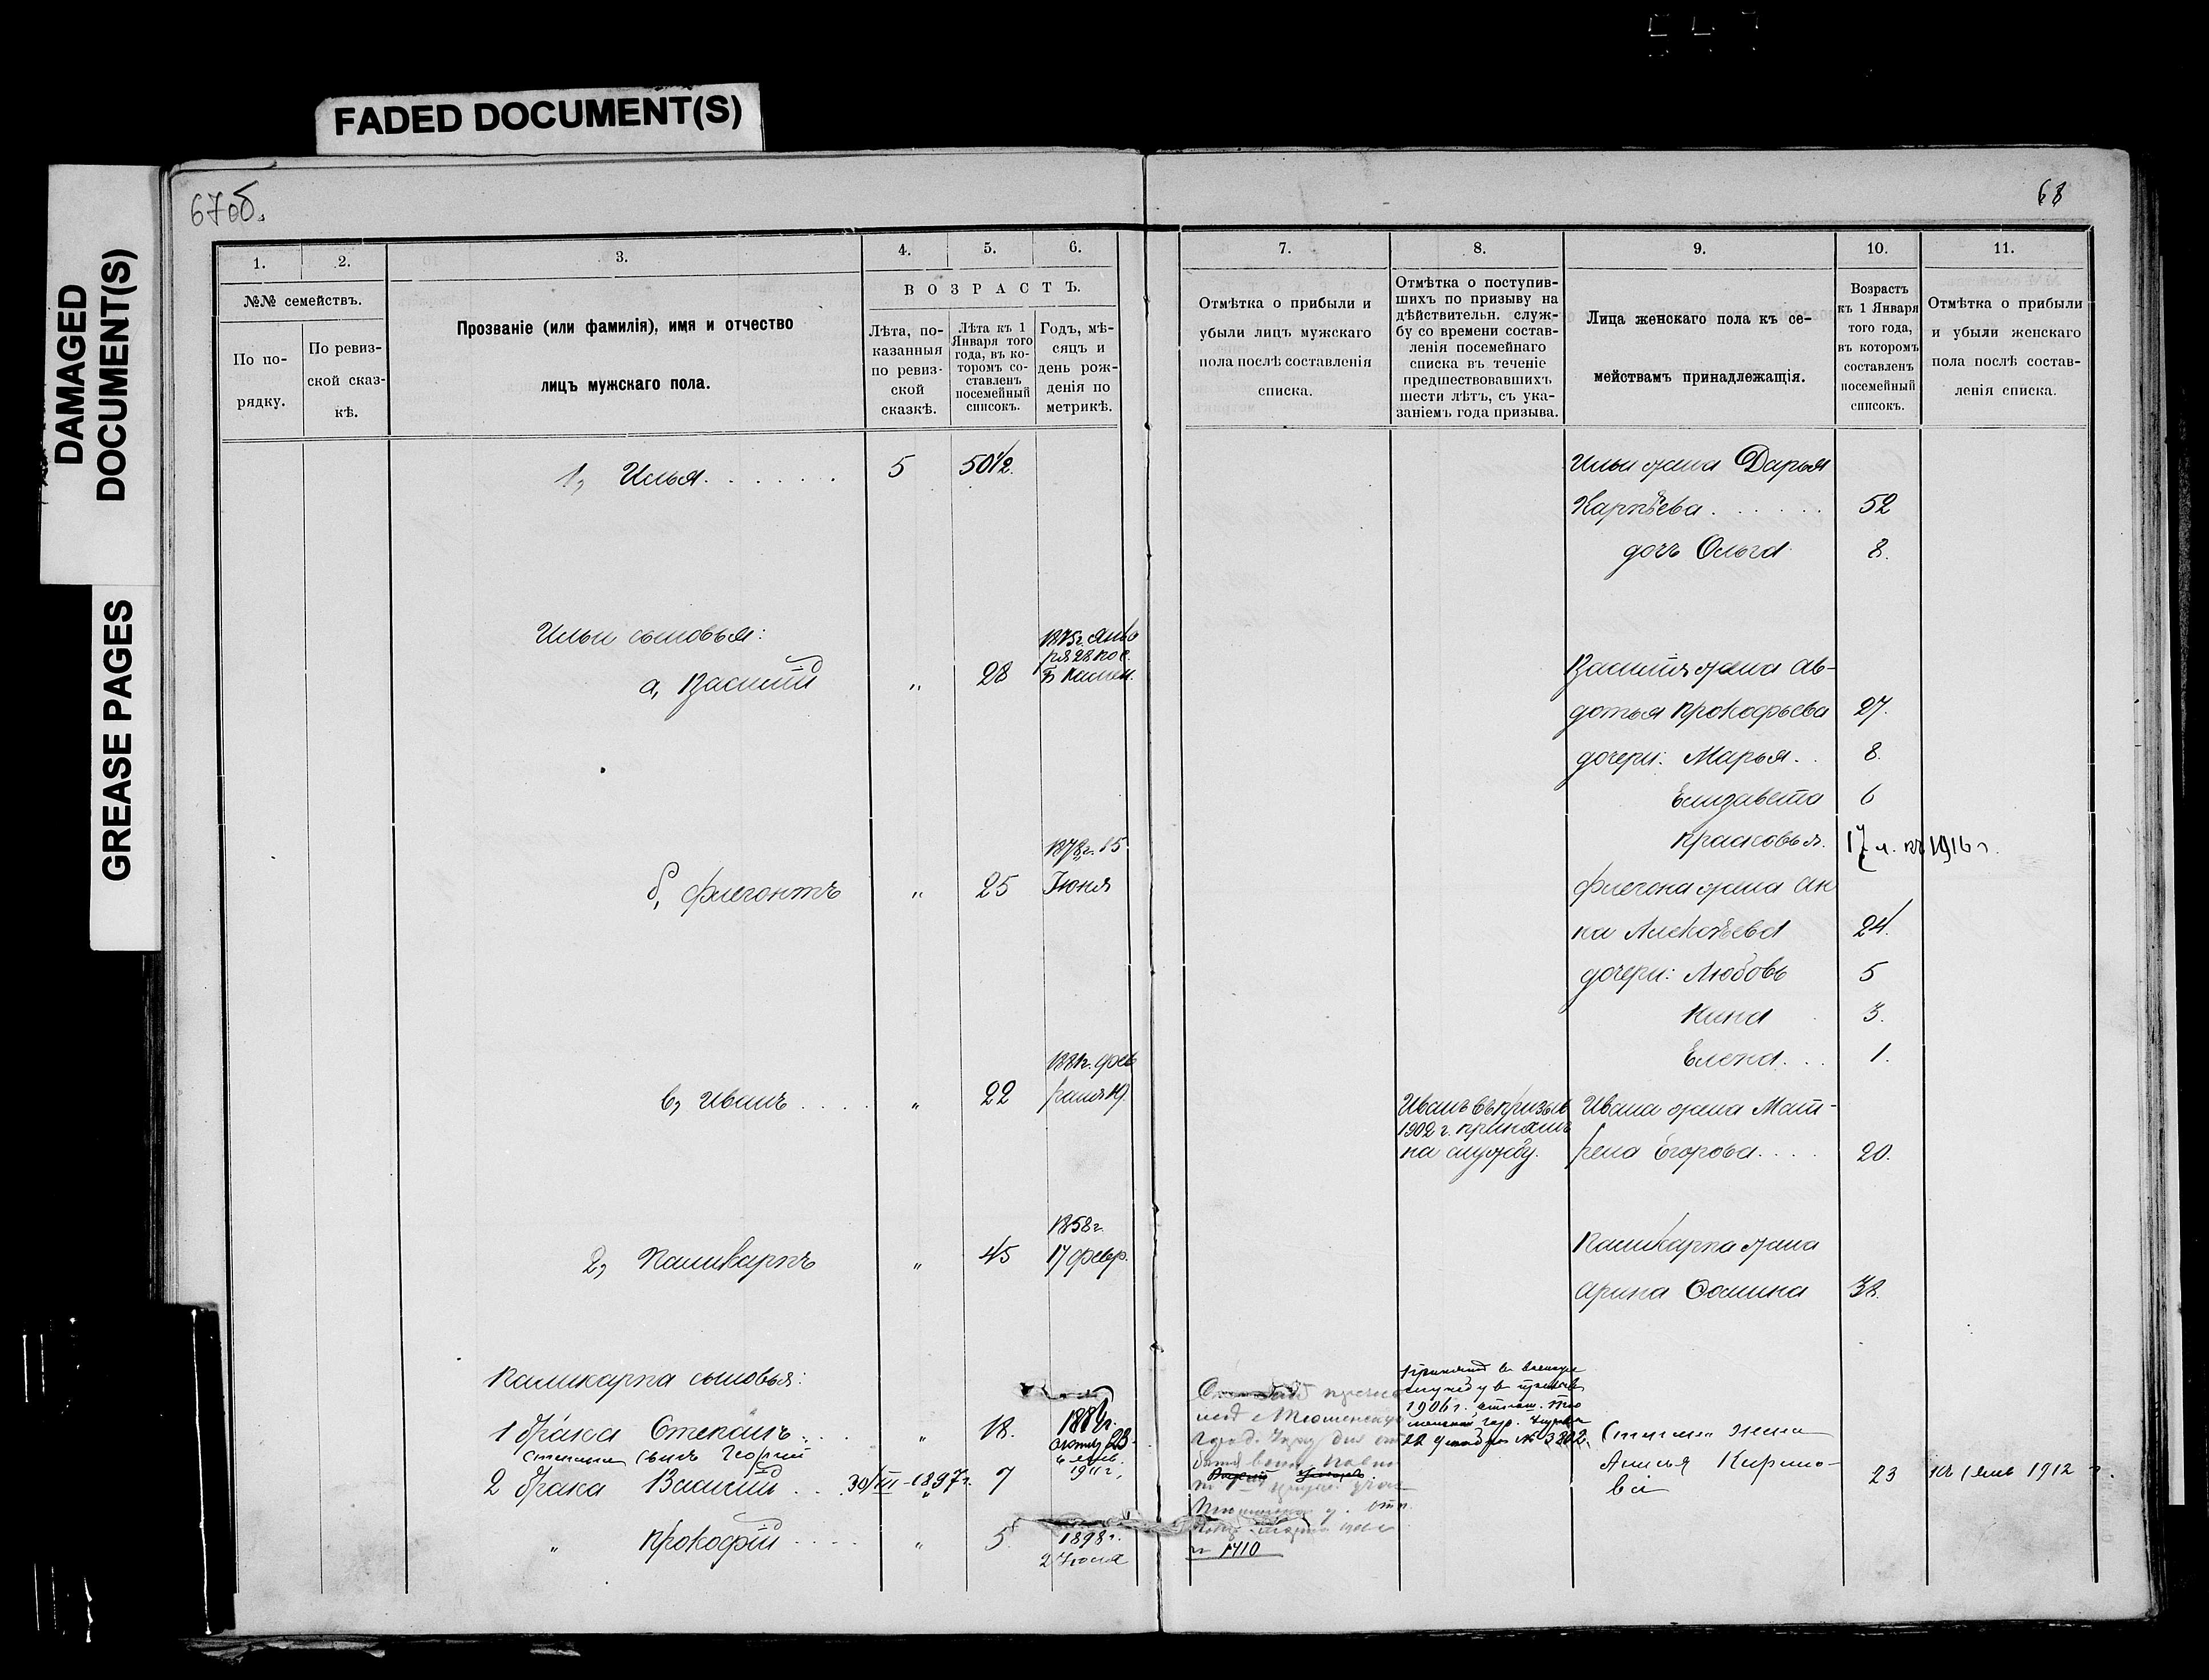 FADED DOCUMENT(S)
DAMAGED
DOCUMENT(S)
GREASE PAGES
67об.
1.
2.
3.
4.
5.
6.
№№ семействъ.
По по-
рядку.
По ревиз-
ской сказ-
кѣ.
Прозваніе (или фамилія), имя и отчество
лицъ мужскаго пола.
ВОЗРАСТЪ.
Лѣта, по-
казанныя
по ревиз-
ской
сказкѣ.
Лѣта къ 1
Января того
года, въ ко-
торомъ со-
ставленъ
посемейный
списокъ.
Годъ, мѣ-
сяцъ и
день рож-
денія по
метрикѣ.
1, Илья 5 50½.
Ильи сыновья:
1875г. Янва
ря 28 пос.
а, Василій „ 28
1878г. 15
б, Флегонтъ „ 25 Іюня
1881г. фев
в, Иванъ „ 22 раля 19
1858г.
2, Паликарпъ „ 45 17 февр.
Паликарпа сыновья:
1 брака Степанъ „ 18.
28
Степана сынъ Георгій 1911г.
2 брака Василій 30/III-1897г. 7
„ Прокофій „ 5. 1898г.
2 Іюля
68
7.
8.
9.
10.
11.
Отмѣтка о прибыли и
убыли лицъ мужскаго
пола послѣ составленія
списка.
Отмѣтка о поступив-
шихъ по призыву на
дѣйствительн. служ-
бу со времени состав-
ленія посемейнаго
списка въ теченіе
предшествовавшихъ
шести лѣтъ, съ ука-
заніемъ года призыва.
Лица женскаго пола къ се-
мействамъ принадлежащія.
Возрастъ
къ 1 Января
того года,
въ которомъ
составленъ
посемейный
списокъ.
Отмѣтка о прибыли
и убыли женскаго
пола послѣ состав-
ленія списка.
Ильи жена Дарья
Карпѣева 52
дочь Ольга 8.
Василія жена Ав-
дотья Прокофьева 27.
дочери: Марья 8.
Елизавета 6
Прасковья. 17 л. къ 1916 г.
Флегона жена Ан
на Алексѣева 24.
дочери: Любовь 5
Нина 3.
Елена 1.
Иванъ въ призыв
1902 г. принятъ
на службу.
Ивана жена Мат-
рена Егорова 20.
Паликарпа жена
Арина Фомина 38.
Принятъ в военную
службу в призывъ
1906 г.
№ 3802.
№ 1710
Степана жена
Анисья Кирило-
ва 23 къ 1 янв 1912 г.